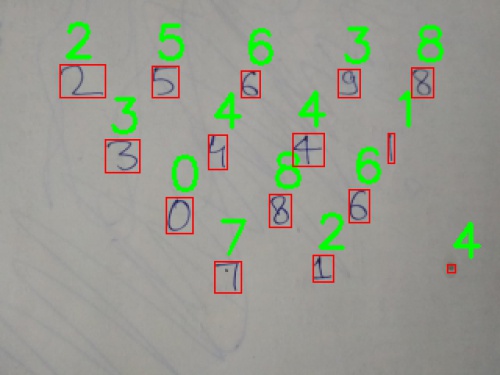 2 5 6 3 8
2 5 6 9 8
3 4 4 1
3 4 4 1
0 8 6
0 8 6
7 2 4
7 1